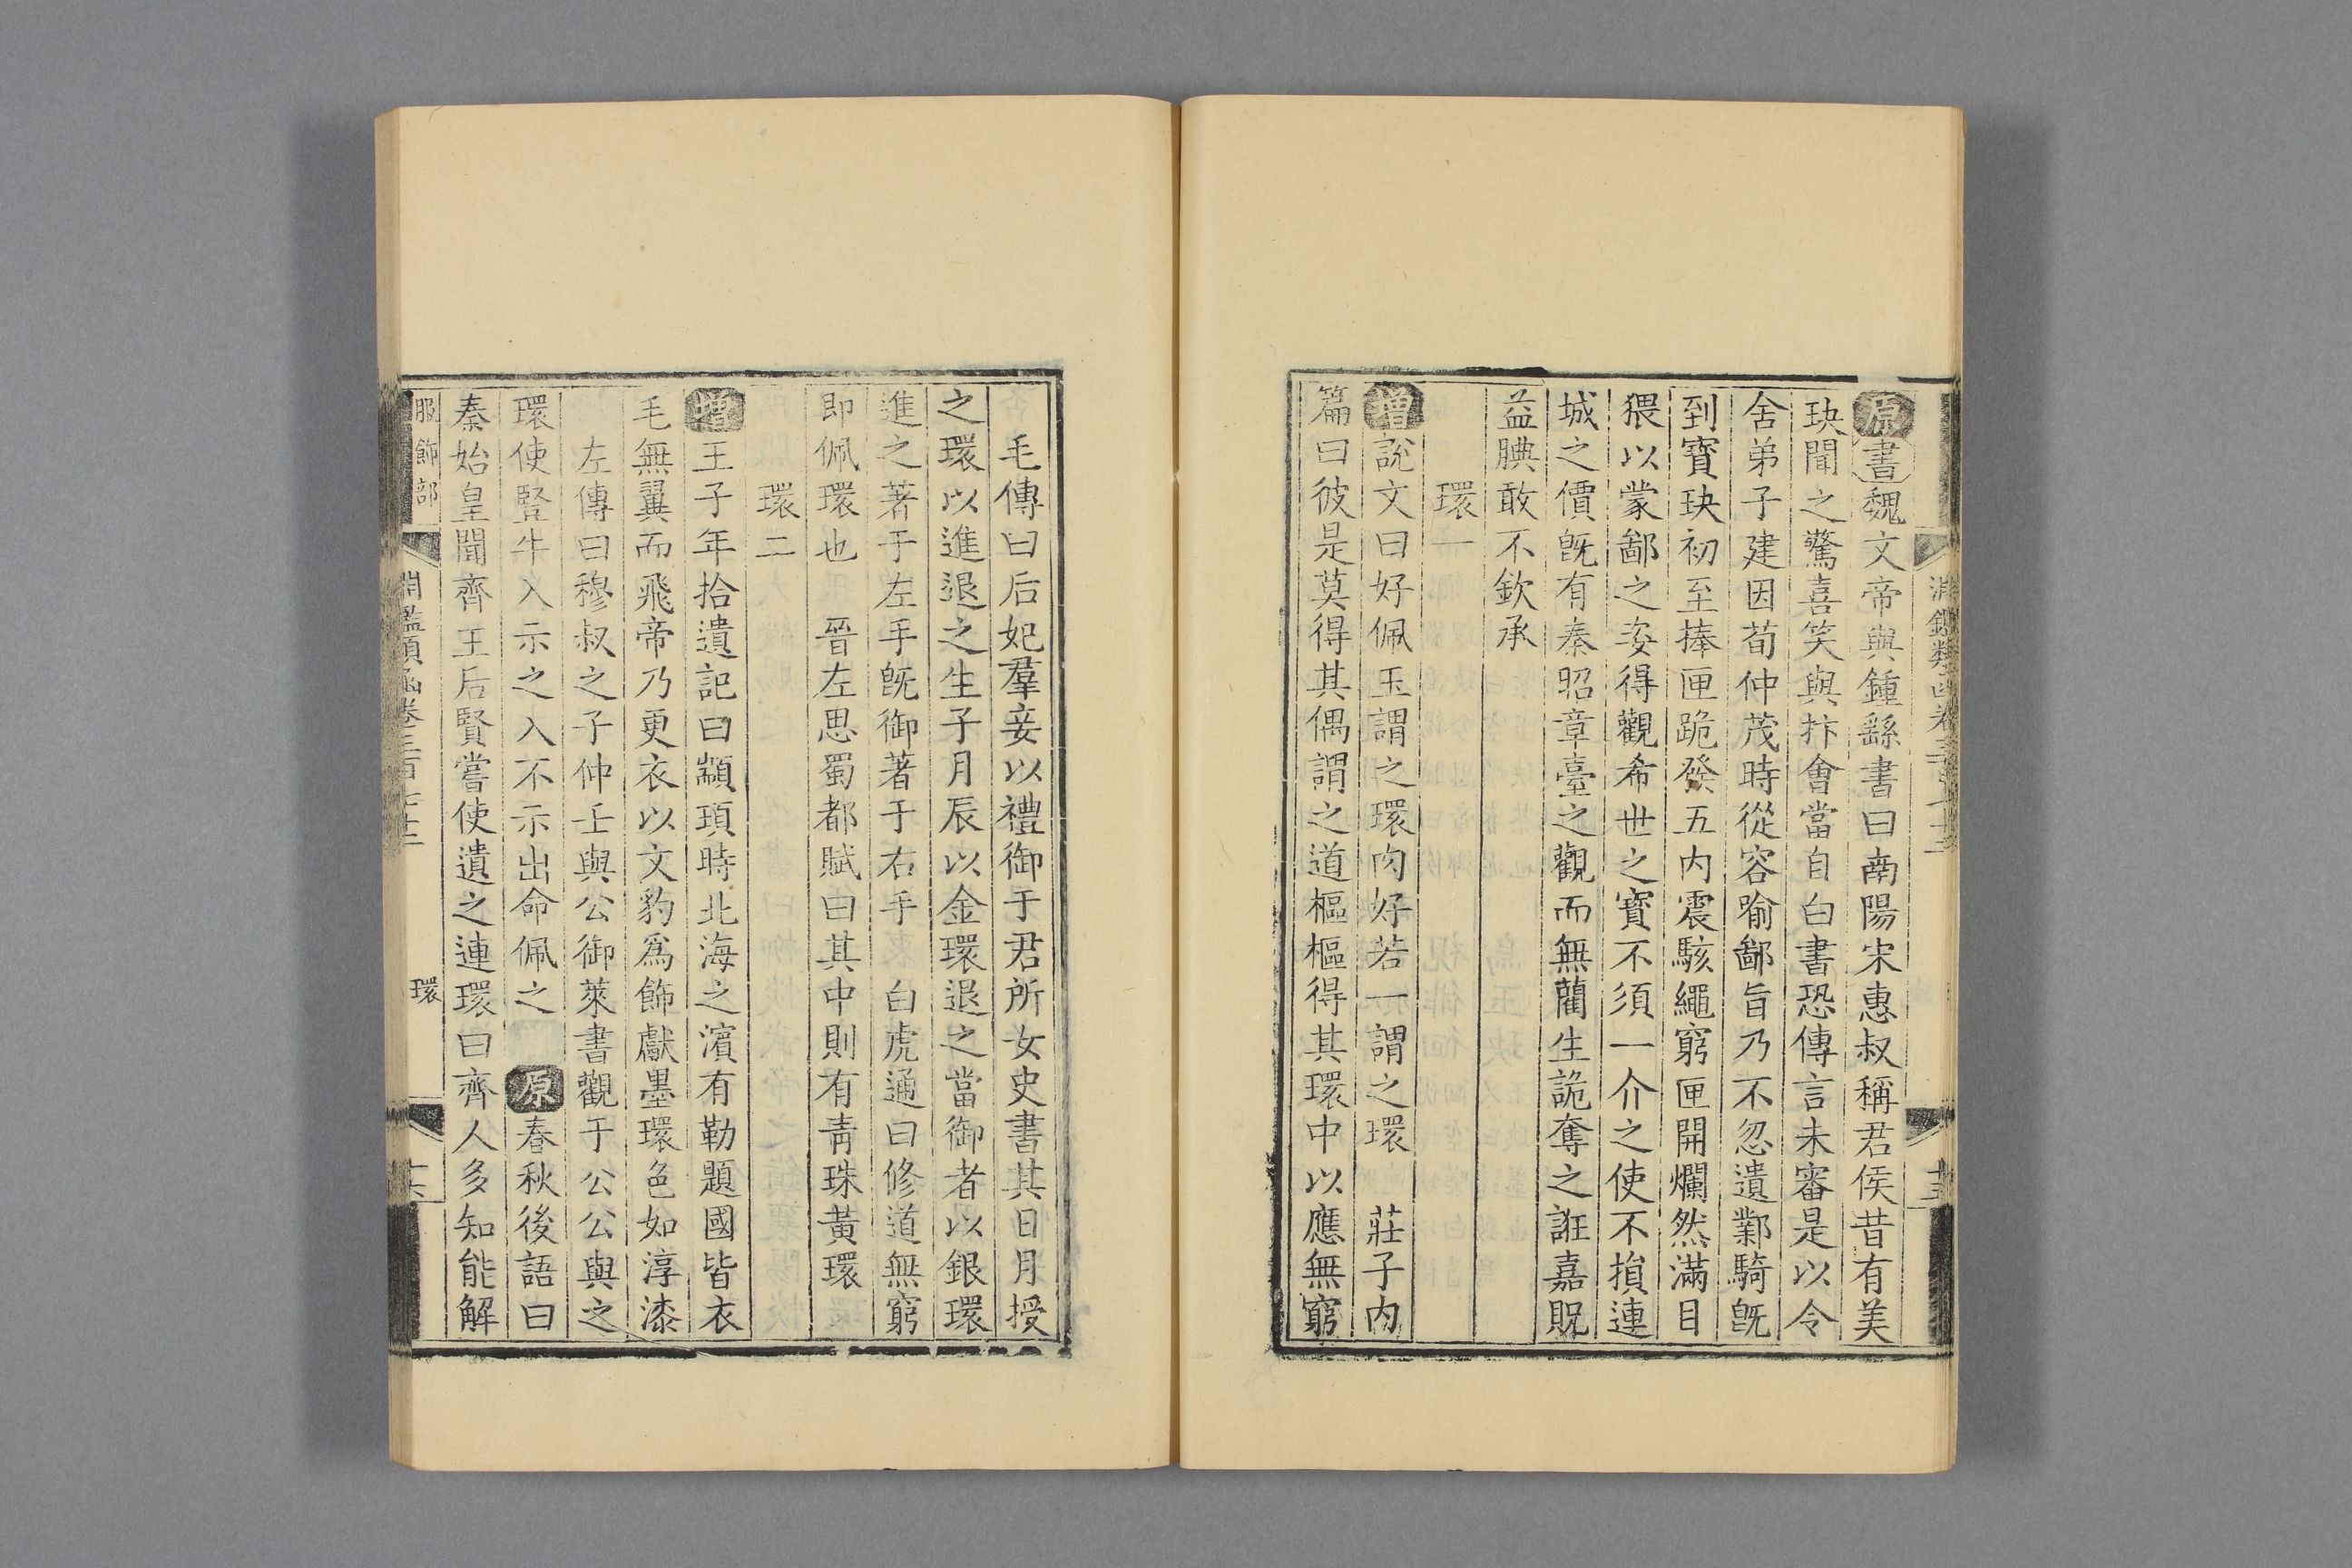 原書魏文帝與鍾繇書曰南陽宋惠叔稱君侯昔有美
玦聞之驚喜笑與抃會當自白書恐傳言未審是以令
舍弟子建因荀仲茂時從容喻鄙旨乃不忽遺鄴騎旣
到寶玦初至捧匣跪發五内震駭繩窮匣開爛然滿目
猥以蒙鄙之姿得觀希世之寶不須一介之使不損連
城之價旣有秦昭章臺之觀而無藺生詭奪之誑嘉貺
益腆敢不欽承
環一
增說文曰好佩玉謂之環肉好若一謂之環　莊子内
篇曰彼是莫得其偶謂之道樞樞得其環中以應無窮
毛傳曰后妃羣妾以禮御于君所女史書其日月授
之環以進退之生子月辰以金環退之當御者以銀環
進之著于左手旣御著于右手　白虎通曰修道無窮
即佩環也　晉左思蜀都賦曰其中則有靑珠黃環
環二
增王子年拾遺記曰顓頊時北海之濱有勒題國皆衣
毛無翼而飛帝乃更衣以文豹爲飾獻墨環色如淳漆
左傳曰穆叔之子仲壬與公御萊書觀于公公與之
環使豎牛入示之入不示出命佩之　原春秋後語曰
秦始皇聞齊王后賢嘗使遺之連環曰齊人多知能解
服飾部　淵鑑類函卷三百七十二　環　十六